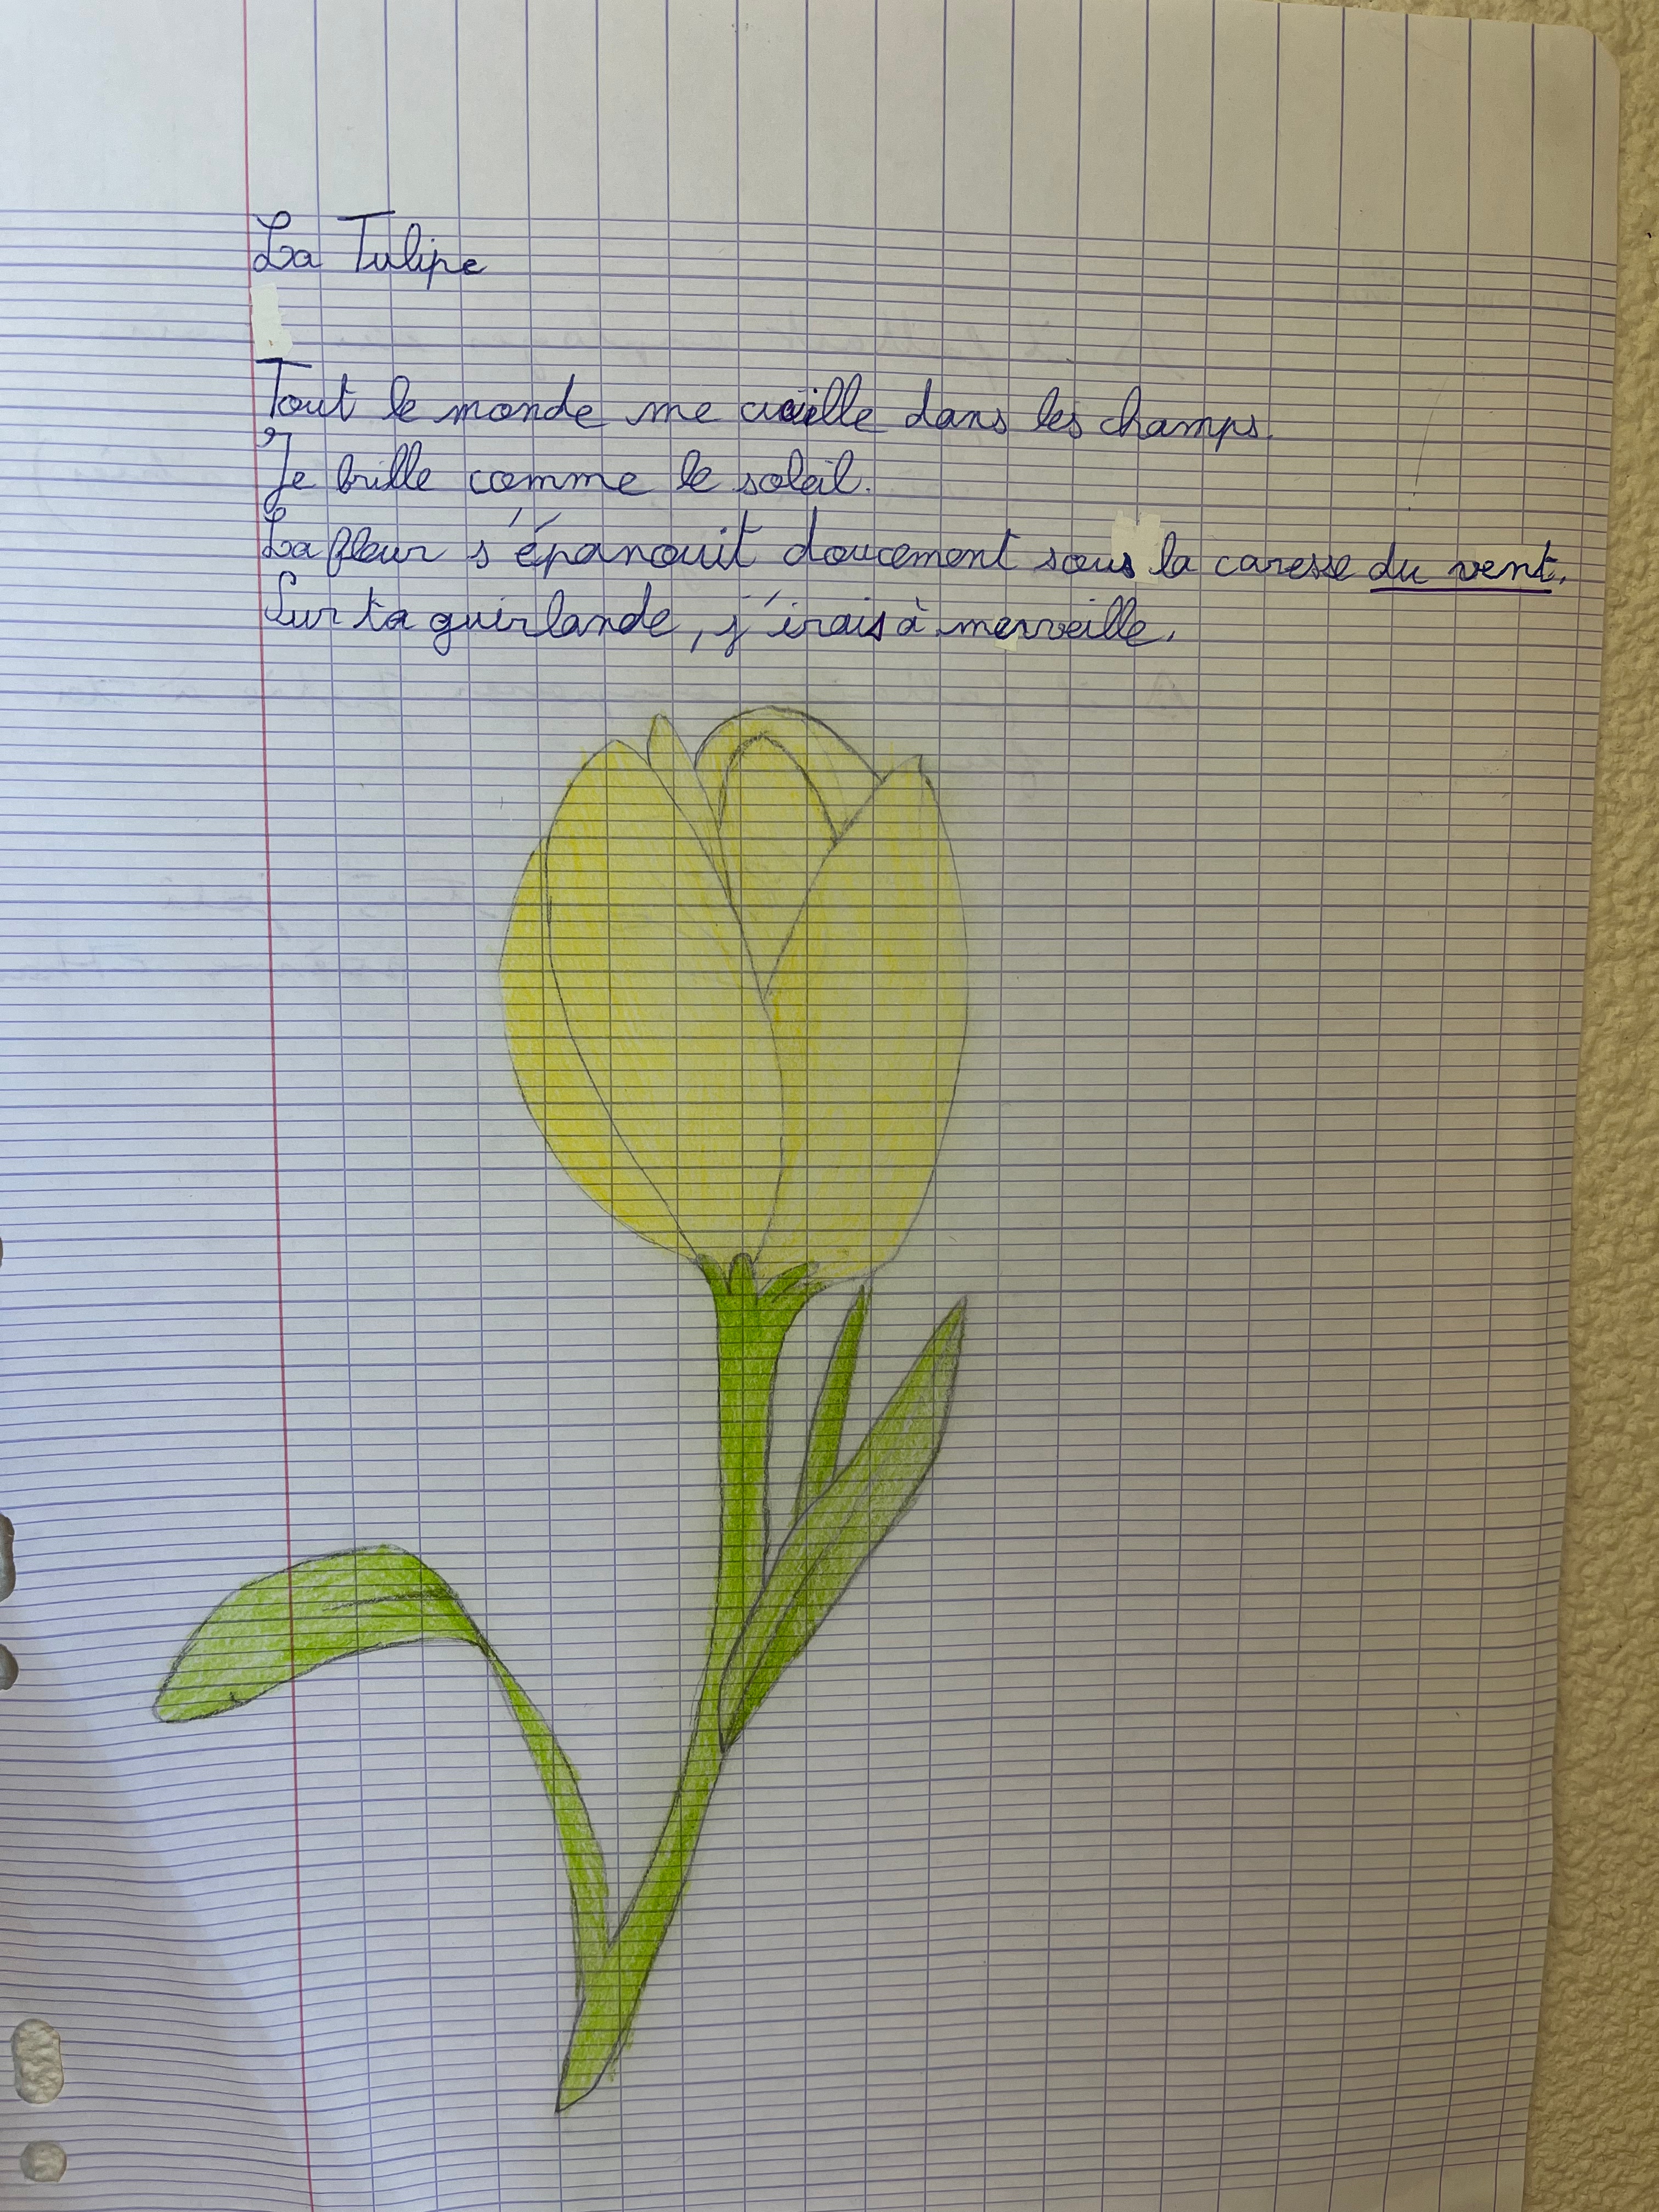 La Tulipe
Tout le monde me cueille dans les champs.
Je brille comme le soleil.
La fleur s'épanouit doucement sous la caresse du vent.
Sur ta guirlande, j'irais à merveille.